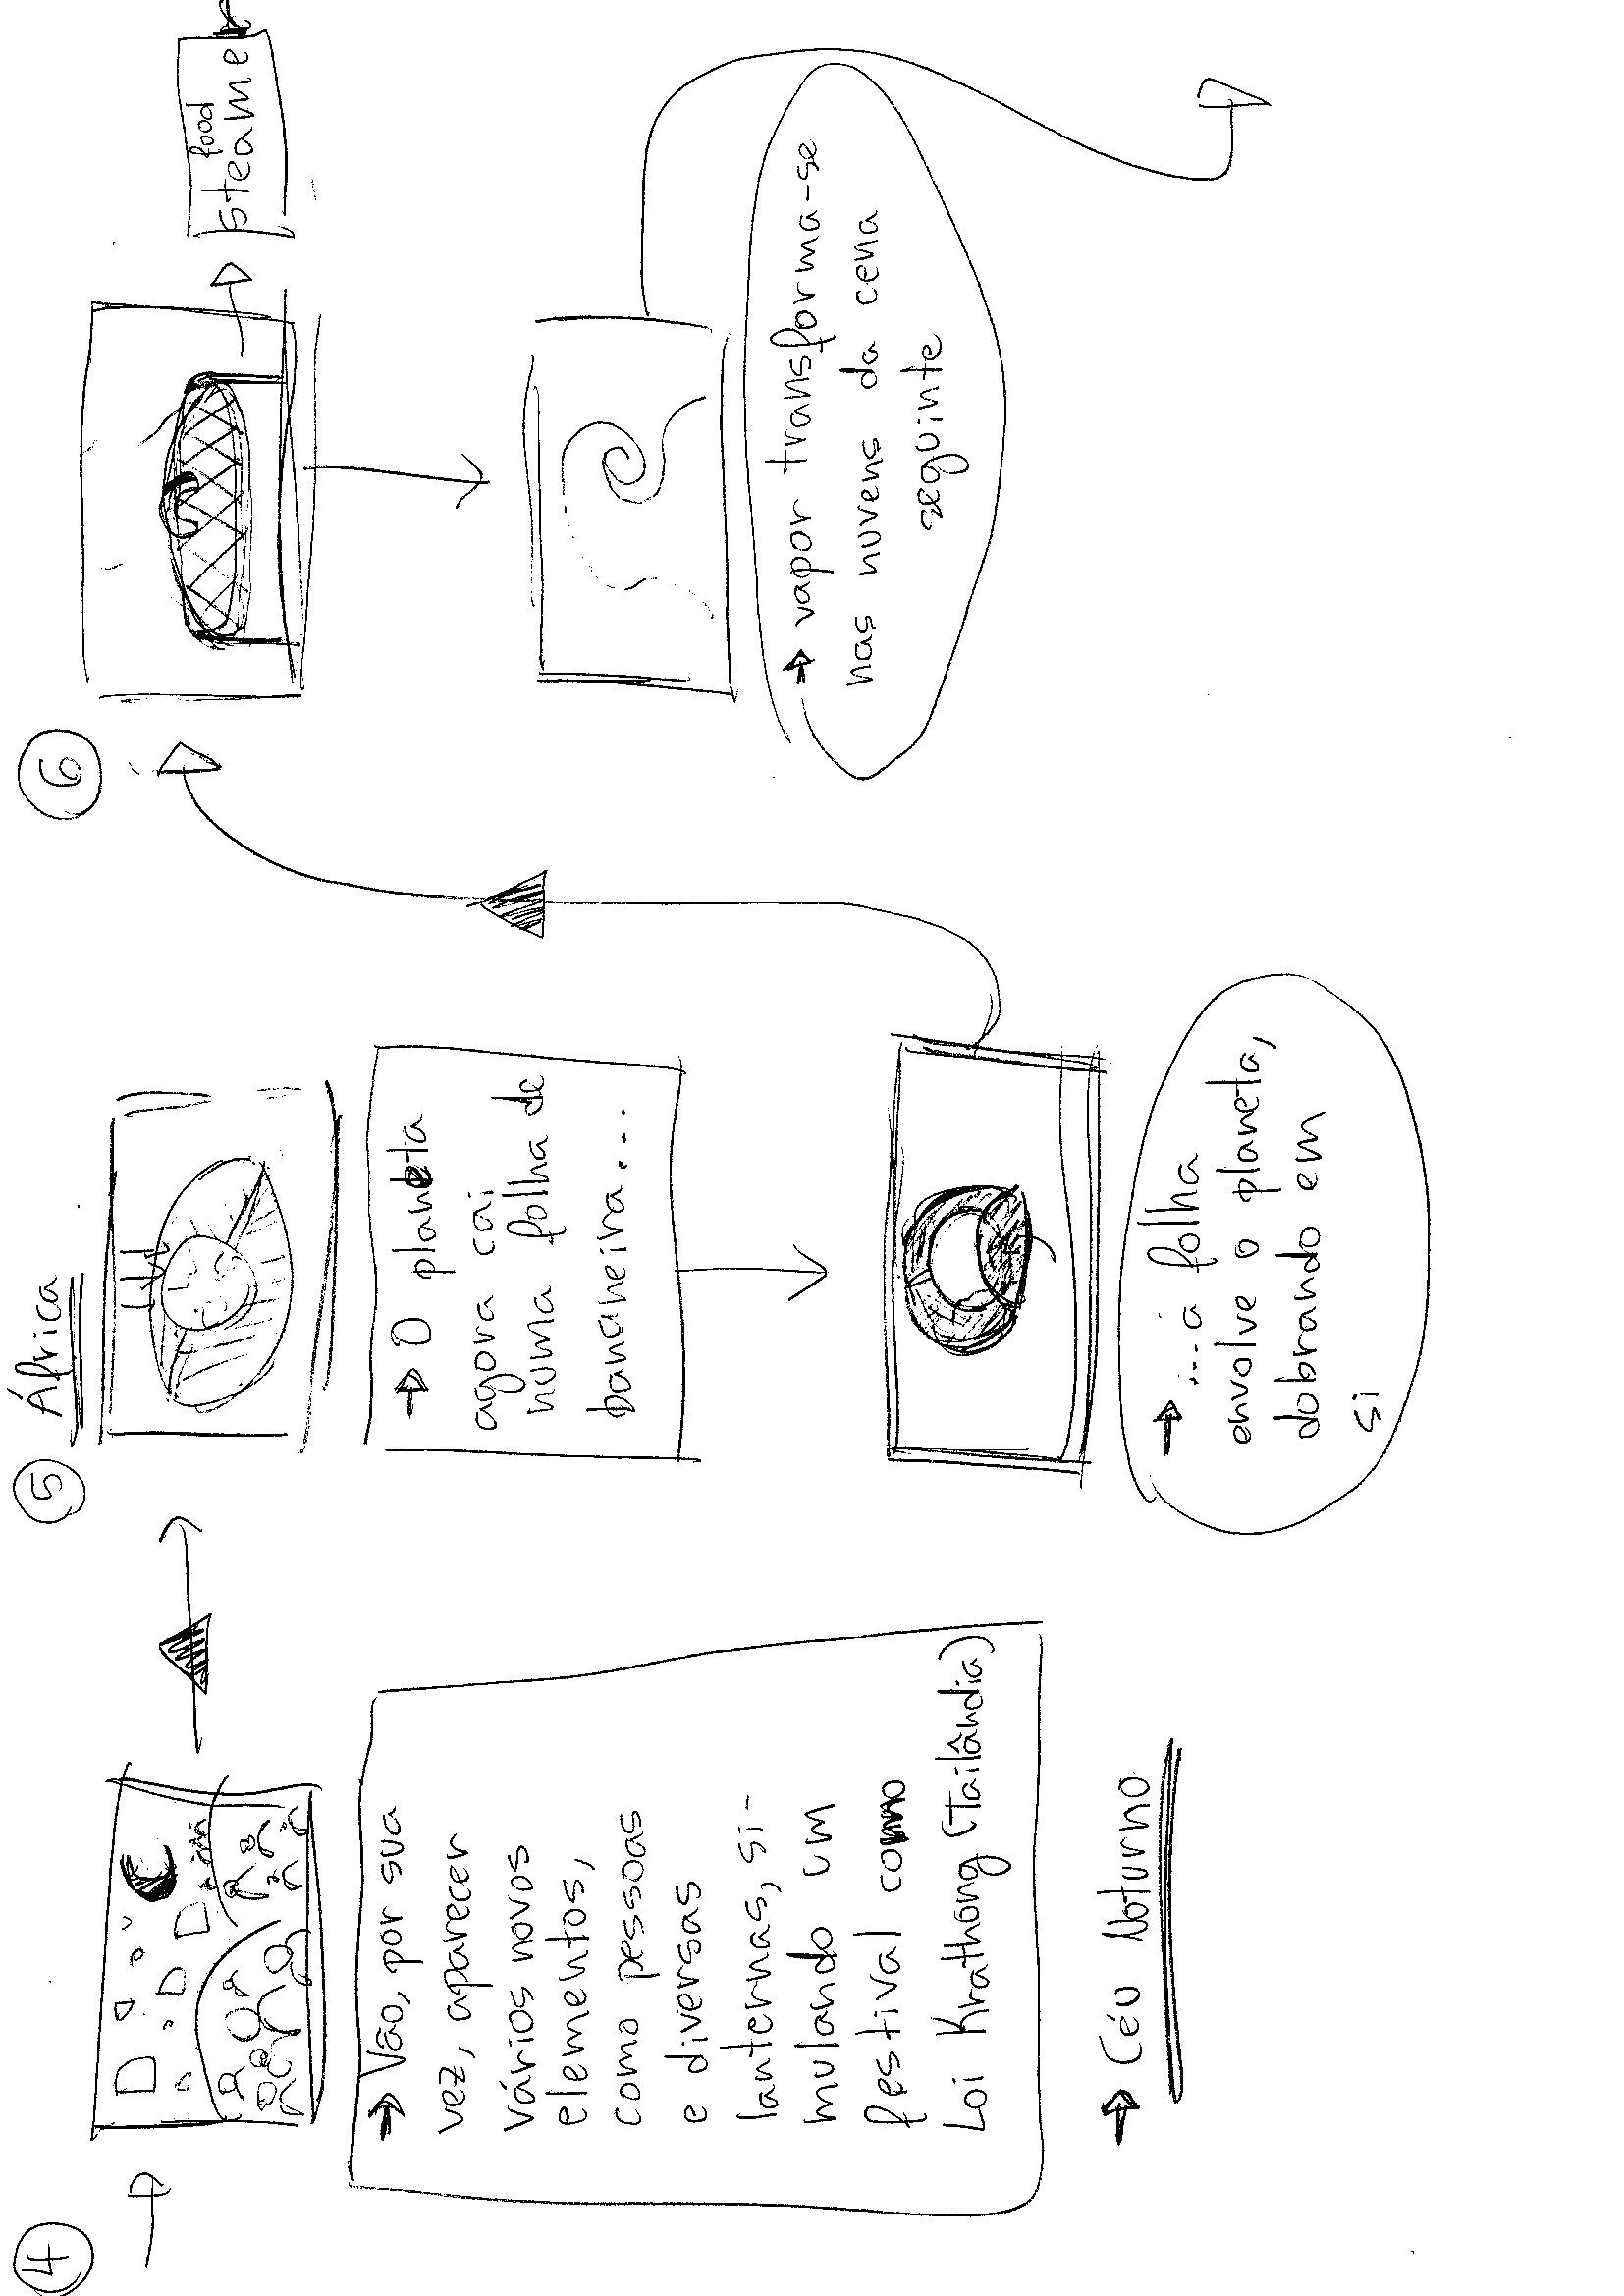 4
→ Vão, por sua
vez, aparecer
vários novos
elementos,
como pessoas
e diversas
lanternas, si-
mulando um
festival como
Loi Krathong (Tailândia)
→ Céu Noturno
5 África
→ O planeta
agora cai
numa folha de
bananeira...
→ ...a folha
envolve o planeta,
dobrando em
si
6
food
steame
→ vapor transforma-se
nas nuvens da cena
seguinte